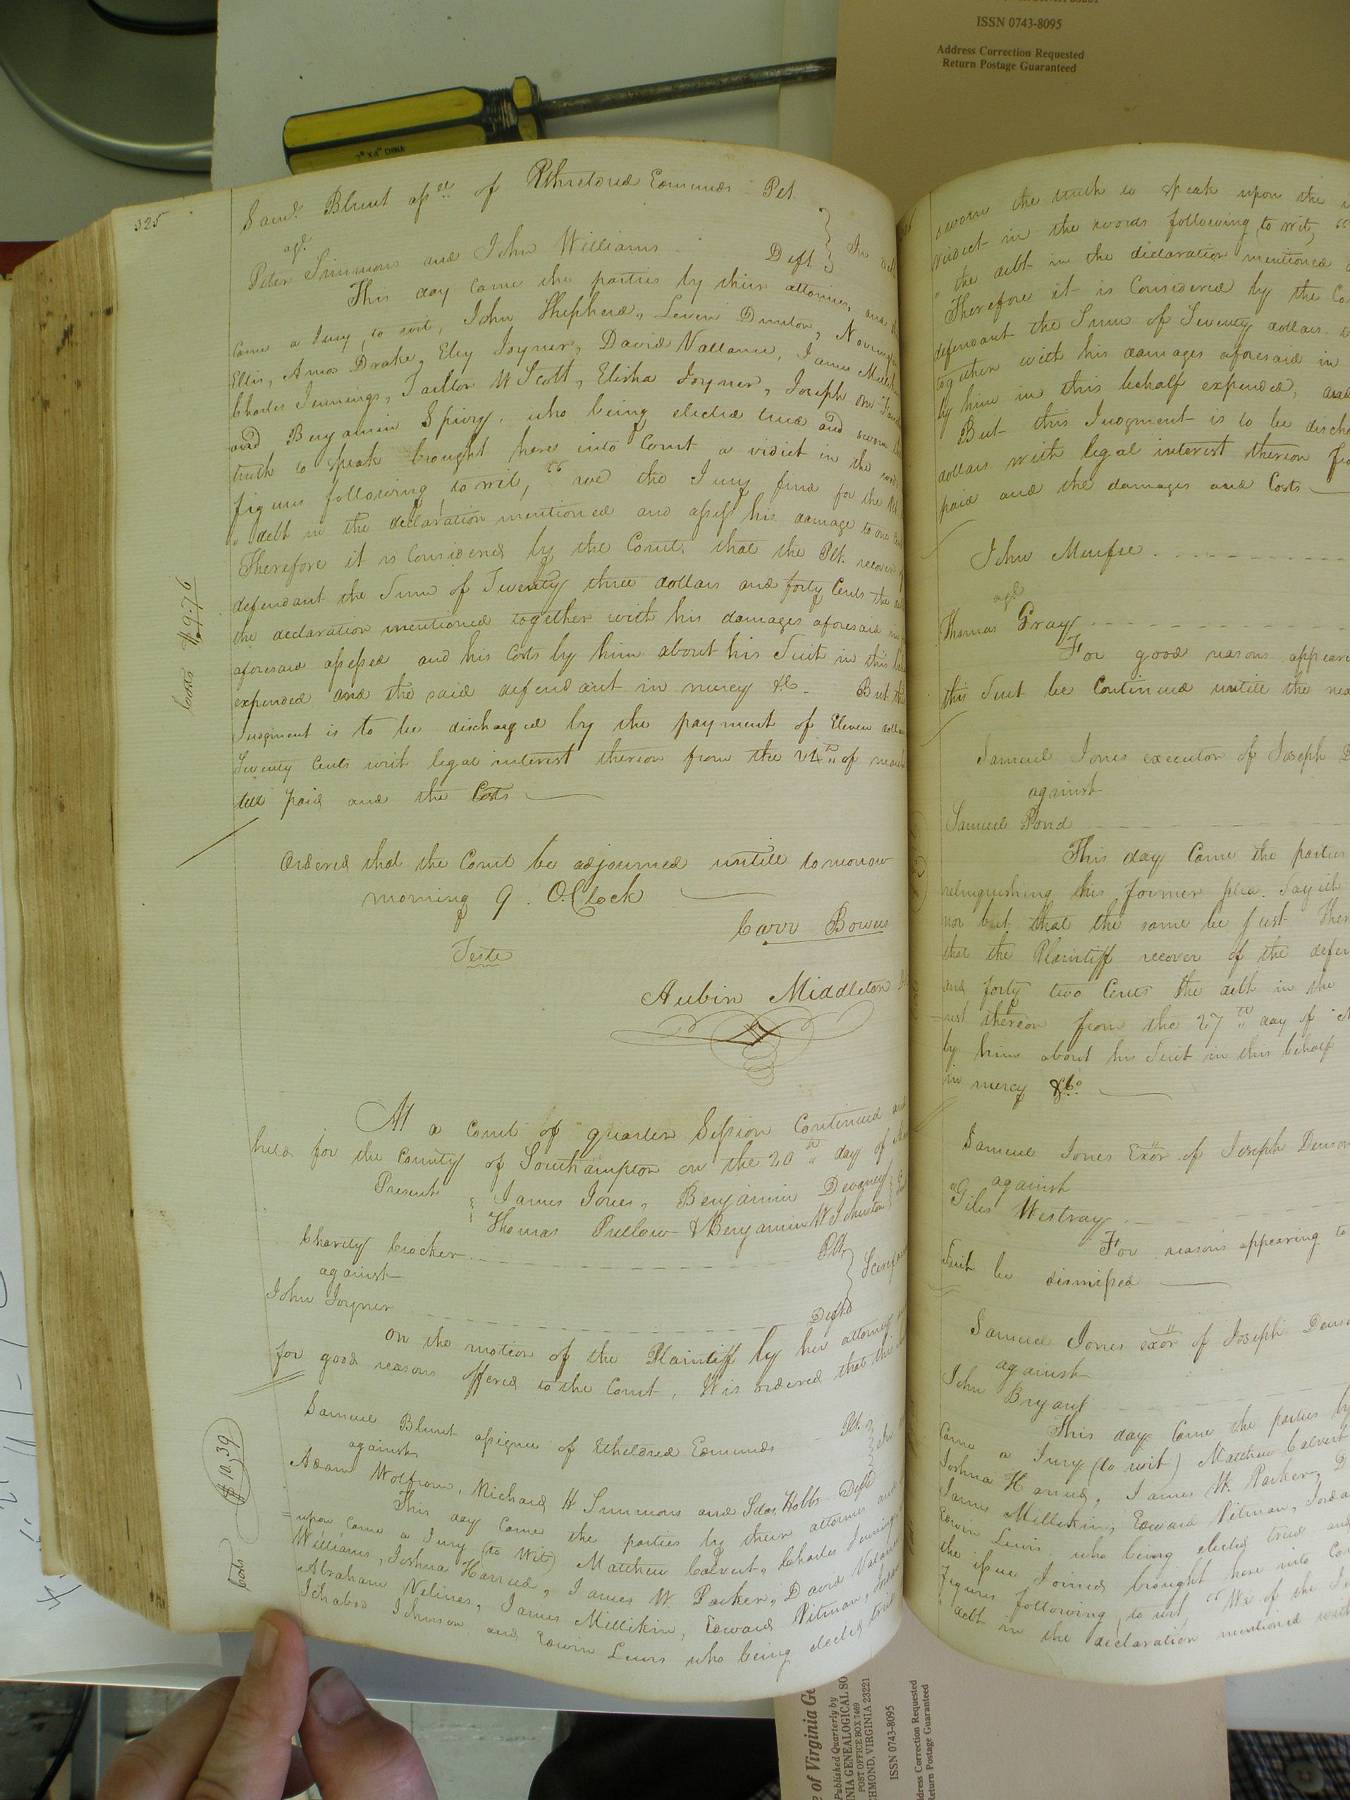 ISSN 0743-8095
Address Correction Requested
Return Postage Guaranteed
7" X 4" CHINA
325
Saml. Blunt assee of Etheldred Edmunds Plt.
agt.
Peter Simmons and John Williams Deft
This day came the parties by their attornies, and
came a Jury, to wit, John Shepherd, Leven Dunton,
Ellis, Amos Drake, Eley Joyner, David Vallance, James
Charles Jennings, Taillor W Scott, Elisha Joyner, Joseph
and Benjamin Spivy, who being elected tried and sworn the
truth to speak brought here into Court a vidict in the words
figures following to wit, "we the Jury find for the Plt
" debt in the declaration mentioned and assess his damage to one
Therefore it is Considered by the Court, that the Plt. recover
defendant the Sum of Twenty three dollars and forty Cents the
the declaration mentioned together with his damages aforesaid in
aforesaid assessed and his Costs by him about his Suit in this
expended and the said defendant in mercy &c. But this
Judgment is to be discharged by the payment of Eleven dollars
Seventy Cents with legal interest thereon from the 24th of
till paid and the Costs
Costs $9.76
Ordered that the Court be adjourned untill tomorrow
morning 9. O.Clock
Carr Bowers
Teste
Aubin Middleton
At a Court of quarter Session Continued and
held for the County of Southampton on the 20th day of
Present James Jones, Benjamin Devany
Thomas Pretlow & Benjamin W Johnston
Charity Crocker Plt.
against
John Joyner Deftd
On the motion of the Plaintiff by her attorney
for good reasons offered to the Court, It is ordered that the
Samuel Blunt assignee of Etheldred Edmunds Plt.
against
Adam Wolfrom, Richard H Simmons and Hobbs Deftd
This day came the parties by their attornies and
upon came a Jury (to Wit) Matthew Calvert, Charles Jennings
Williams, Joshua Harred, James W. Parker, David Valance
Abraham Nelmes, James Millikin, Edward Pitman,
Ichabod Johnson and Edwin Lewis who being elected tried
Costs $10,39
sworn the truth to speak upon the
vidict in the words following to wit,
" the debt in the declaration mentioned
Therefore it is Considered by the
defendant the Sum of Twenty dollars
together with his damages aforesaid in
by him in this behalf expended, and
But this Judgment is to be
dollars with legal interest thereon
paid and the damages and Costs
John Murfee
agt
Thomas Gray
For good reasons
this Suit be Continued untill the
Samuel Jones executor of Joseph
against
Samuel Pond
This day Came the parties
relinquishing his former plea. Saysth
nor but that the same be just.
that the Plaintiff recover of the
and forty two Cents the debt in the
rest thereon from the 27th day of
by him about his Suit in this behalf
in mercy &c.
Samuel Jones Exor. of Joseph
against
Giles Westray
For reasons appearing to
Suit be dismissed
Samuel Jones exor of Joseph
against
John Bryant
This day Came the parties by
Came a Jury (to wit) Matthew Calvert
Joshua Harred, James W. Parker,
James Millikin, Edward Pitman,
Edwin Lewis who being elected tried and
the issue Joined brought here into
figures following to wit, "We of the
" debt in the declaration mentioned
Published Quarterly by
POST OFFICE BOX 7469
RICHMOND, VIRGINIA 23221
ISSN 0743-8095
Address Correction Requested
Return Postage Guaranteed